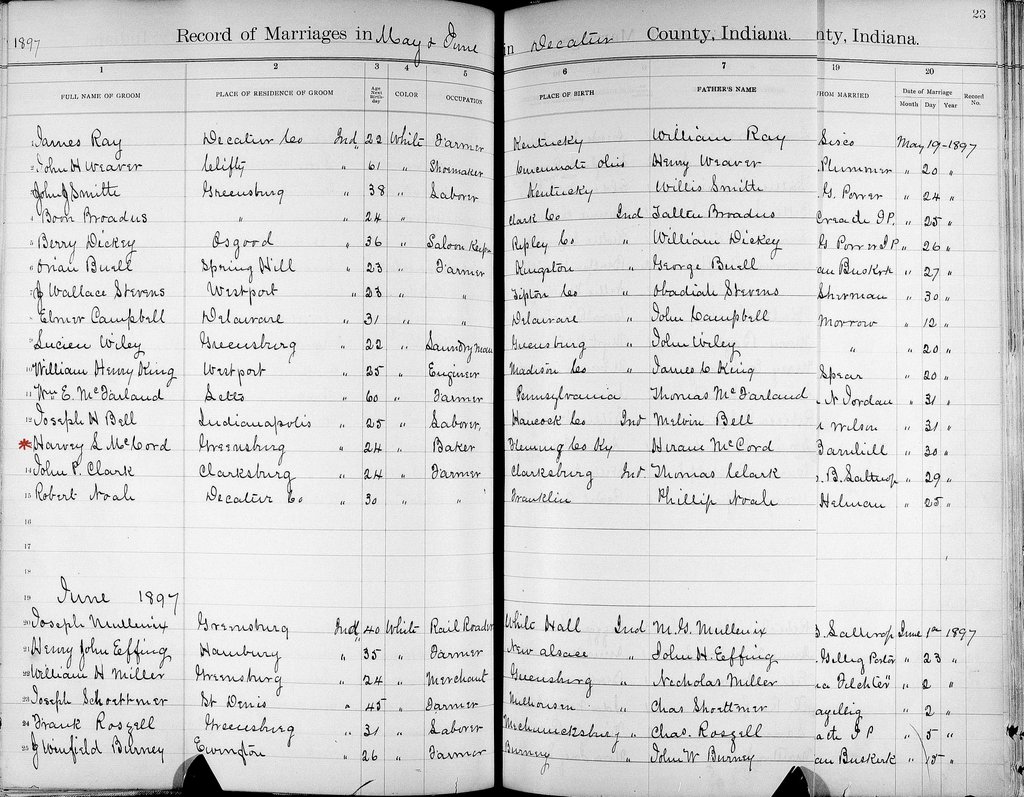 23
1897 Record of Marriages in May & June in Decatur County, Indiana. nty, Indiana.
1 2 3 4 5 6 7 19 20
FULL NAME OF GROOM PLACE OF RESIDENCE OF GROOM Age Next Birth-day COLOR OCCUPATION PLACE OF BIRTH FATHER'S NAME HOM MARRIED Date of Marriage Month Day Year Record No.
1 James Ray Decatur Co Ind 22 White Farmer Kentucky William Ray Sisco May 19 - 1897
2 John H Weaver Clifty " 61 " Shoemaker Cincinnati Ohio Henry Weaver Plummer " 20 "
3 John J Smith Greensburg " 38 " Laborer Kentucky Willis Smith G. Power " 24 "
4 Boon Broadus " " 24 " Clark Co Ind Broadus J.P. " 25 "
5 Berry Dickey Osgood " 36 " Saloon Keeper Ripley Co " William Dickey J.P. " 26 "
6 Orian Buell Spring Hill " 23 " Farmer Kingston " George Buell an Buskirk " 27 "
7 J Wallace Stevens Westport " 23 " " Tipton Co " Obadiah Stevens Sherman " 30 "
8 Elmer Campbell Delaware " 31 " " Delaware " John Campbell Morrow " 12 "
9 Lucien Wiley Greensburg " 22 " Laundryman Greensburg " John Wiley " " 20 "
10 William Henry King Westport " 25 " Engineer Madison Co " James C King Spear " 20 "
11 Wm E. McFarland Letts " 60 " Farmer Pennsylvania Thomas McFarland N Jordan " 31 "
12 Joseph H Bell Indianapolis " 25 " Laborer Hancock Co Ind Melvin Bell Wilson " 31 "
* Harvey L McCord Greensburg " 24 " Baker Fleming Co Ky Hiram McCord Barnhill " 30 "
14 John P. Clark Clarksburg " 24 " Farmer Clarksburg Ind Thomas Clark B. " 29 "
15 Robert Noah Decatur Co " 30 " " Franklin Phillip Noah Helman " 25 "
16
17
18
19 June 1897
20 Joseph Mullenix Greensburg Ind 40 White Rail Roader White Hall Ind M. G. Mullenix June 1st 1897
21 Henry John Effing Hamburg " 35 " Farmer New Alsace " John H. Effing Pastor " 23 "
22 William H Miller Greensburg " 24 " Merchant Greensburg " Necholas Miller " 2 "
23 Joseph Schoettmer St Denis " 45 " Farmer Milhousen " Chas Shoettmer " 2 "
24 Frank Roszell Greensburg " 31 " Laborer Mechanicksburg " Chas. Roszell J P " 5 "
25 J Winfield Burney Ewington " 26 " Farmer Burney " John W Burney an Buskirk " 15 "